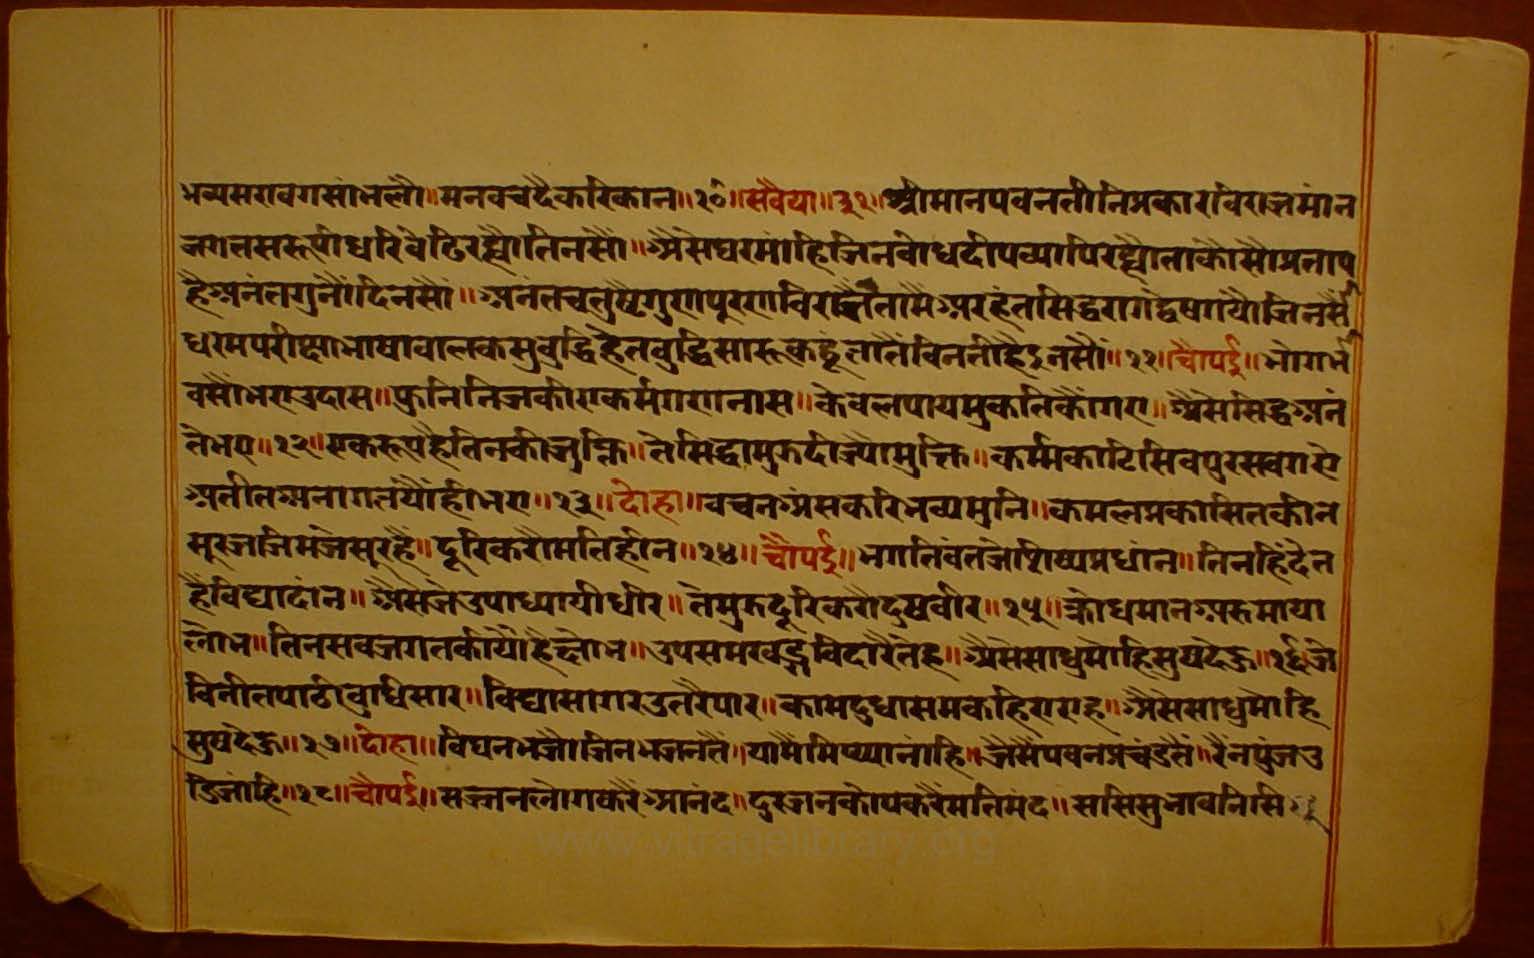 भव्यसरावगसांभलौ॥मनवचदैकरिकान॥१०॥सवैया॥३१॥श्रीमानपवनतीनिप्रकारविराजमांन
जगतसरूपीधरिवेढिरह्यौतिनसौं॥अैसेघरमांहिजिनबोधदीपव्यापिरह्यौताकौसौप्रताप
हैअनंतगुनौंदिनसौं॥अनंतचतुष्टैगुणपूरणविराजैतामैअरहंतसिद्धरागद्वेषगयौजिनसैं
धरमपरीष्याभाषाबालकसुबुद्धिहेतबुद्धिसारूकहूंतातैंविनतीहैइनसौं॥११॥चौपई॥भोगभ
वसौंभएउदास॥फुनिनिजकीएकर्मगएनास॥केवलपायमुकतिकौंगए॥अैसेसिद्धअनं
तेभए॥१२॥एकरूपहैतिनकीजुक्ति॥तेसिद्धामुझदीज्योमुक्ति॥कर्म्मकाटिसिवपुरसबगए
अतीतअनागतयौंहीभए॥१३॥दोहा॥वचनअंसकरिभव्यमुनि॥कमलप्रकासितकीन
सूरजजिमजेसूरहैं॥दूरिकरौमतिहीन॥१४॥चौपई॥भगतिवंतजेशिष्यप्रधांन॥तिनहिंदेत
हैंविद्यादांन॥अैसेजेउपाध्यायीधीर॥तेमुझदूरिकरौदुषवीर॥१५॥क्रोधमानअरुमाया
लोभ॥तिनसबजगतकीयौहैछोभ॥उपसमखड्गविदारैतेह॥अैसेसाधुमोहिसुषदेऊ॥१६॥जे
विनीतपाठीबुधिसार॥विद्यासागरउतरैपार॥कामदुधासमकहिएएह॥अैसेसाधुमोहि
सुषदेऊ॥१७॥दोहा॥विघनभजौजिनभजनतैं॥यामैंमिथ्यानांहि॥जैसैंपवनप्रचंडतैं॥रैंनपुंजउ
डिजांहि॥१८॥चौपई॥सज्जनलोगकरैंआनंद॥दुरजनकोपकरैंमतिमंद॥ससिसुभावनिसि
www.vitragelibrary.org